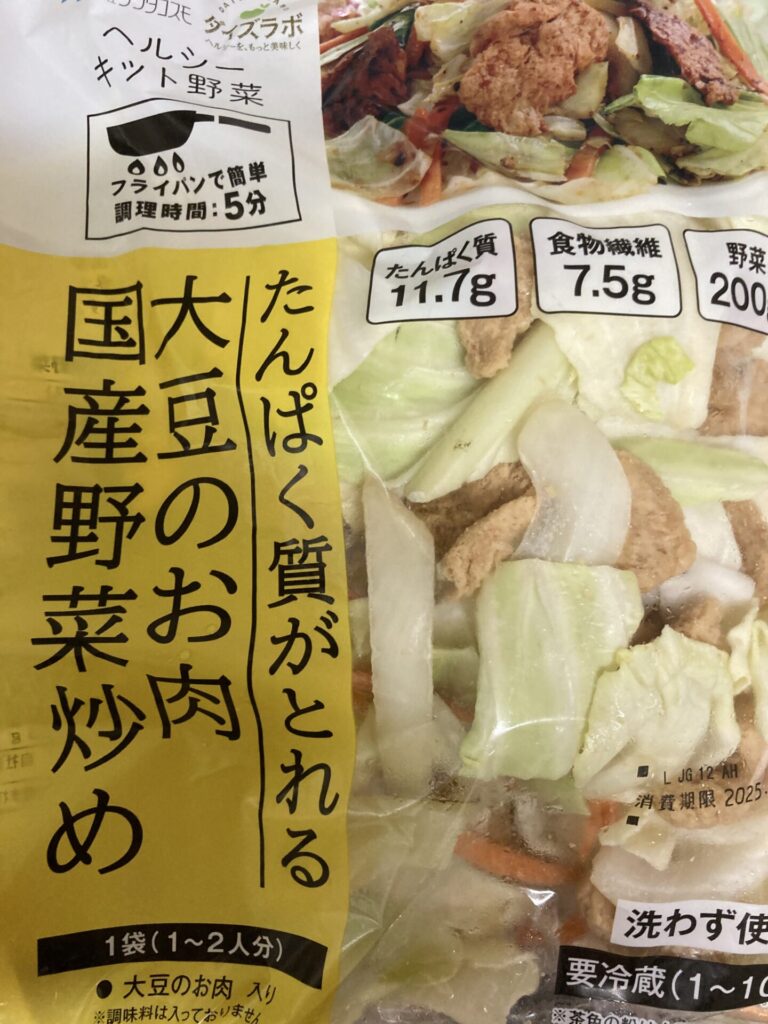 ダイズラボ
ヘルシーを、もっと美味しく
ヘルシー
キット野菜
フライパンで簡単
調理時間：5分
たんぱく質
11.7g
食物繊維
7.5g
野菜
200g
たんぱく質がとれる
大豆のお肉
国産野菜炒め
L JG 12 AH
消費期限 2025.
洗わず使
要冷蔵(1～10
1袋(1～2人分)
●大豆のお肉 入り
※調味料は入っておりません